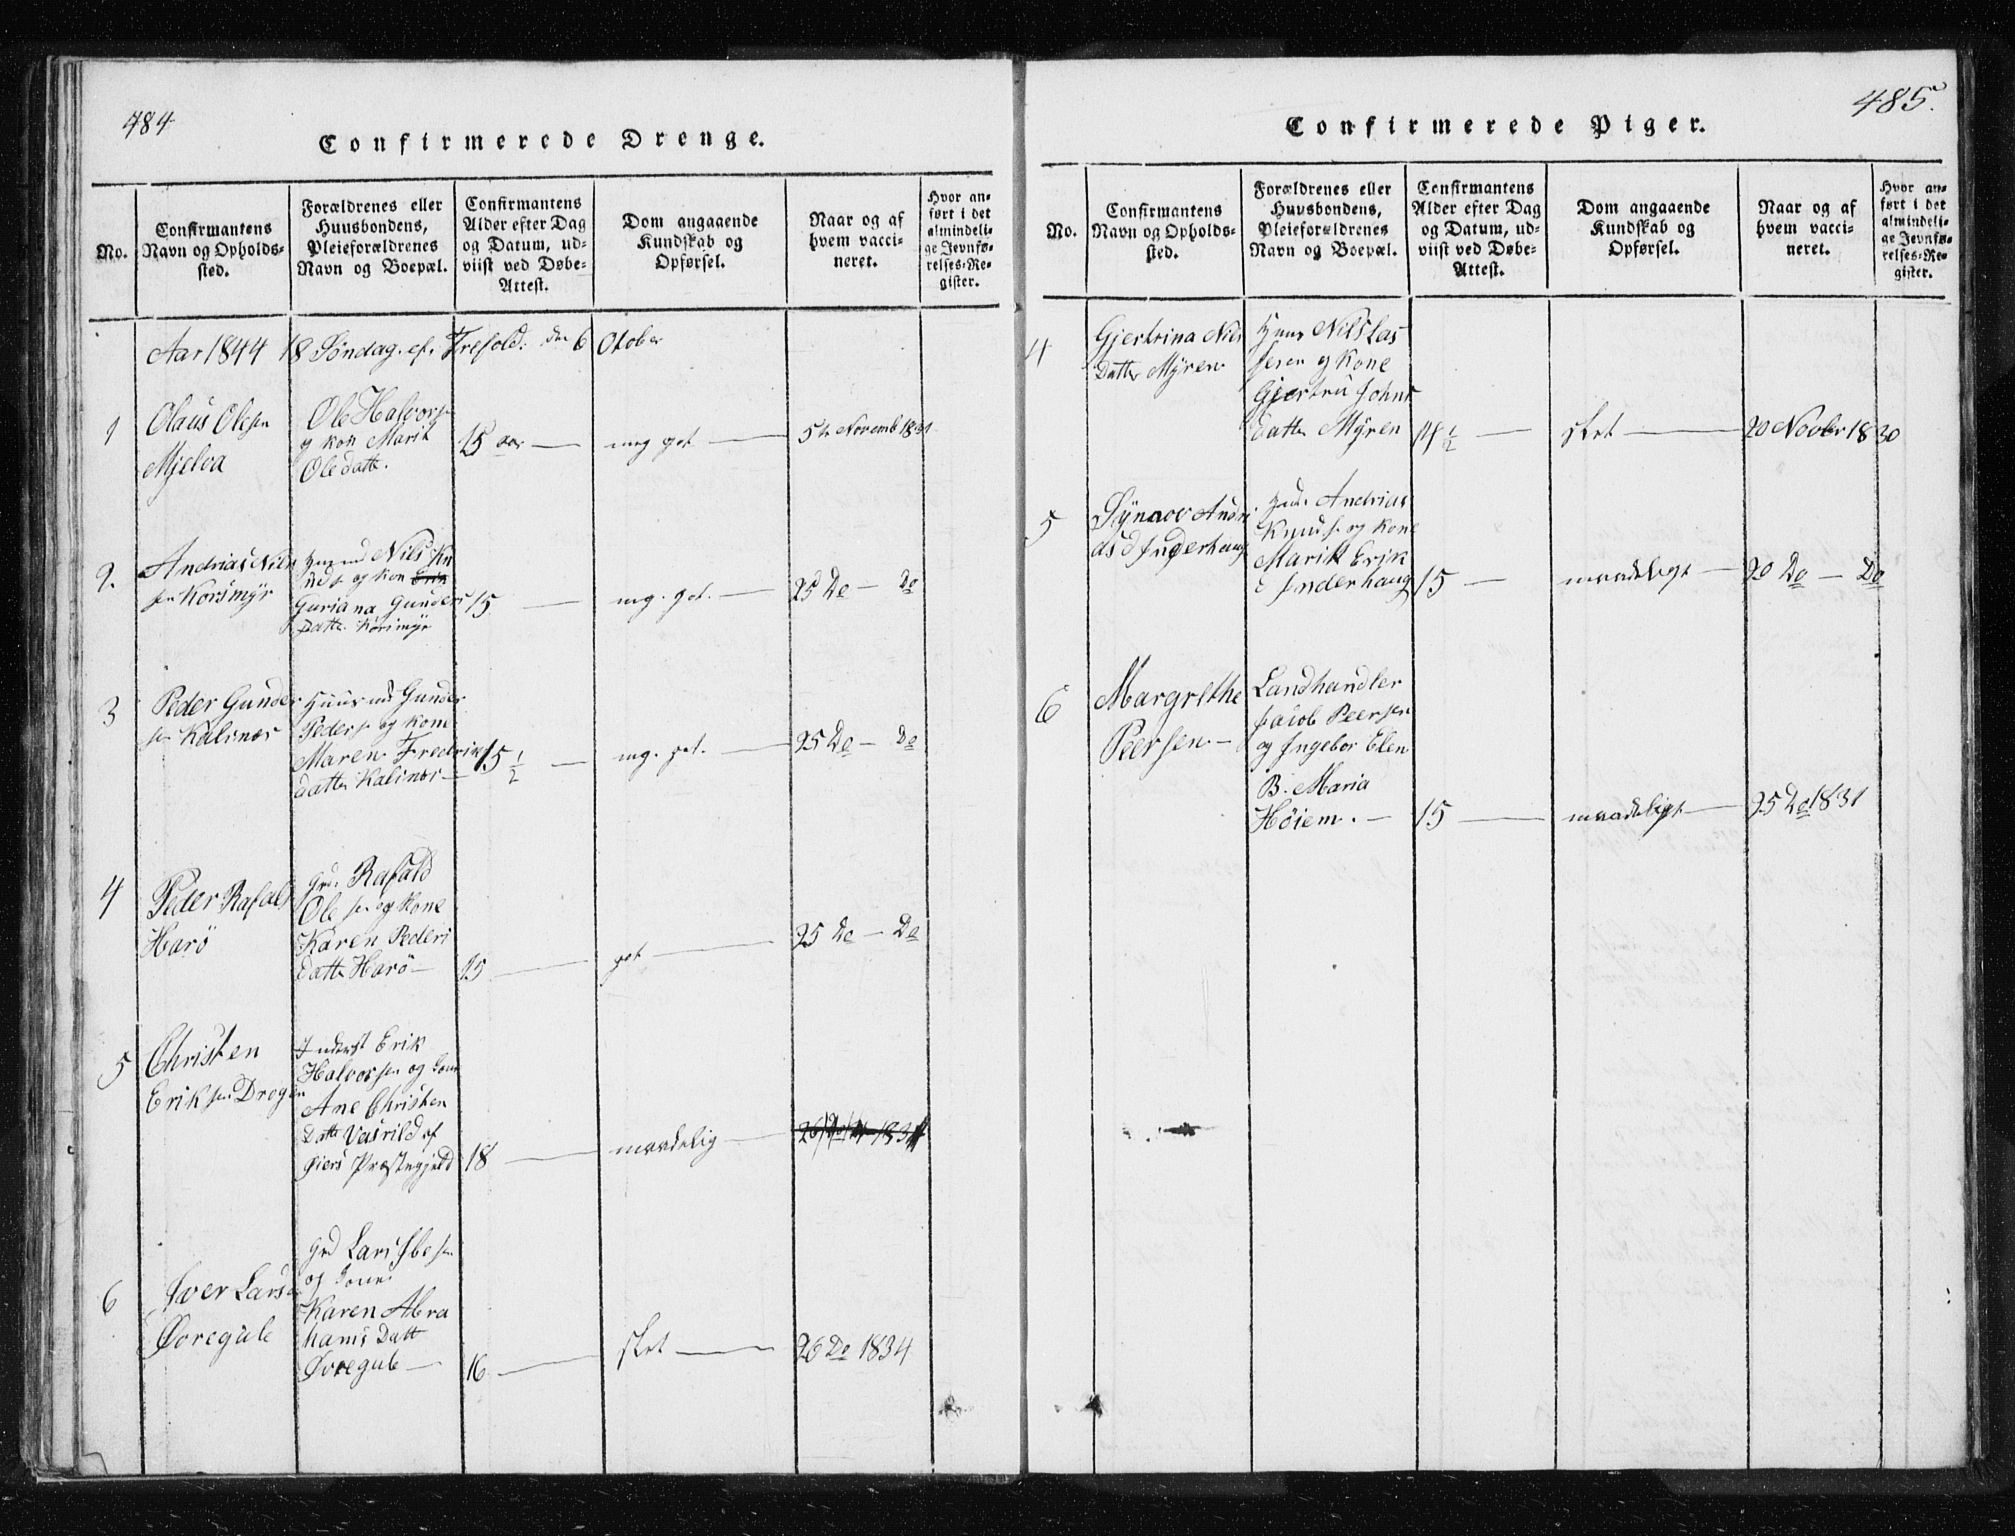 484
Confirmerede Drenge.
No.
Confirmantens
Navn og Opholds-
sted.
Forældrenes eller
Huusbondens,
Pleieforældrenes
Navn og Boepæl.
Confirmantens
Alder efter Dag
og Datum, ud-
viist ved Døbe-
Attest.
Dom angaaende
Kundskab og
Opførsel.
Naar og af
hvem vacci-
neret.
Hvor an-
ført i det
almindeli-
ge Jevnfø-
relses-Re-
gister.
Aar 1844 18 Søndag. ef. Trefold: den 6 Otober
1
Olaus Olesen
Mjelva
Ole Halvors
og kon Marit
Oledatte.
15 aar
meg got
5te Novemb 1831
2.
Andrias Nils
sen Korsmyr
Nils Kn
uds. og kon Erik
Guriana Gunders
Datte. Korsmyr
15
mg. got.
25 Do - Do
3
Peder Gunder
sen Kalsnes
Huusmd Gunder
Peders. og kone
Maren Fredriks
datte Kalsnes
15 1/2
mg. got.
25 Do - Do
4
Peder Rafals
Harö
Grd. Rafald
Ole sen og kone
Karen Peders
datte Harö
15
got
25 Do - Do
5
Christen
Eriksen Drogen
Inderst Erik
Halvorsen og kone
Ane Christen
Datte Vasrild af
Øiers Præstegjeld
18
maadelig
6
Iver Lars
Øvregule
Grd Lars
og kone
Karen Abra
hams Datt
Øvregule
16
slet
26 Do 1834
485.
Confirmerede Piger.
No.
Confirmantens
Navn og Opholds-
sted.
Forældrenes eller
Huusbondens,
Pleieforældrenes
Navn og Boepæl.
Confirmantens
Alder efter Dag
og Datum, ud-
viist ved Døbe-
Attest.
Dom angaaende
Kundskab og
Opførsel.
Naar og af
hvem vacci-
neret.
Hvor an-
ført i det
almindeli-
ge Jevnfø-
relses-Re-
gister.
4
Gjertrina Nils
Datte Myren
Huus Nils Las
sesen og Kone
Gjertru Johns
datte Myren
14 1/2
slet
20 Novbr 1830
5
Synnov Andri
as d Inderhaug
Huus. Andrias
Knuds. og kone
Marit Erik
d Inderhaug
15
maadeligt
20 Do - Do
6
Margrethe
Peersen
Landhandler
Jacob Peersen
og Ingebor Elen
B. Maria
Höiem.
15
maadeligt
25 Do 1831